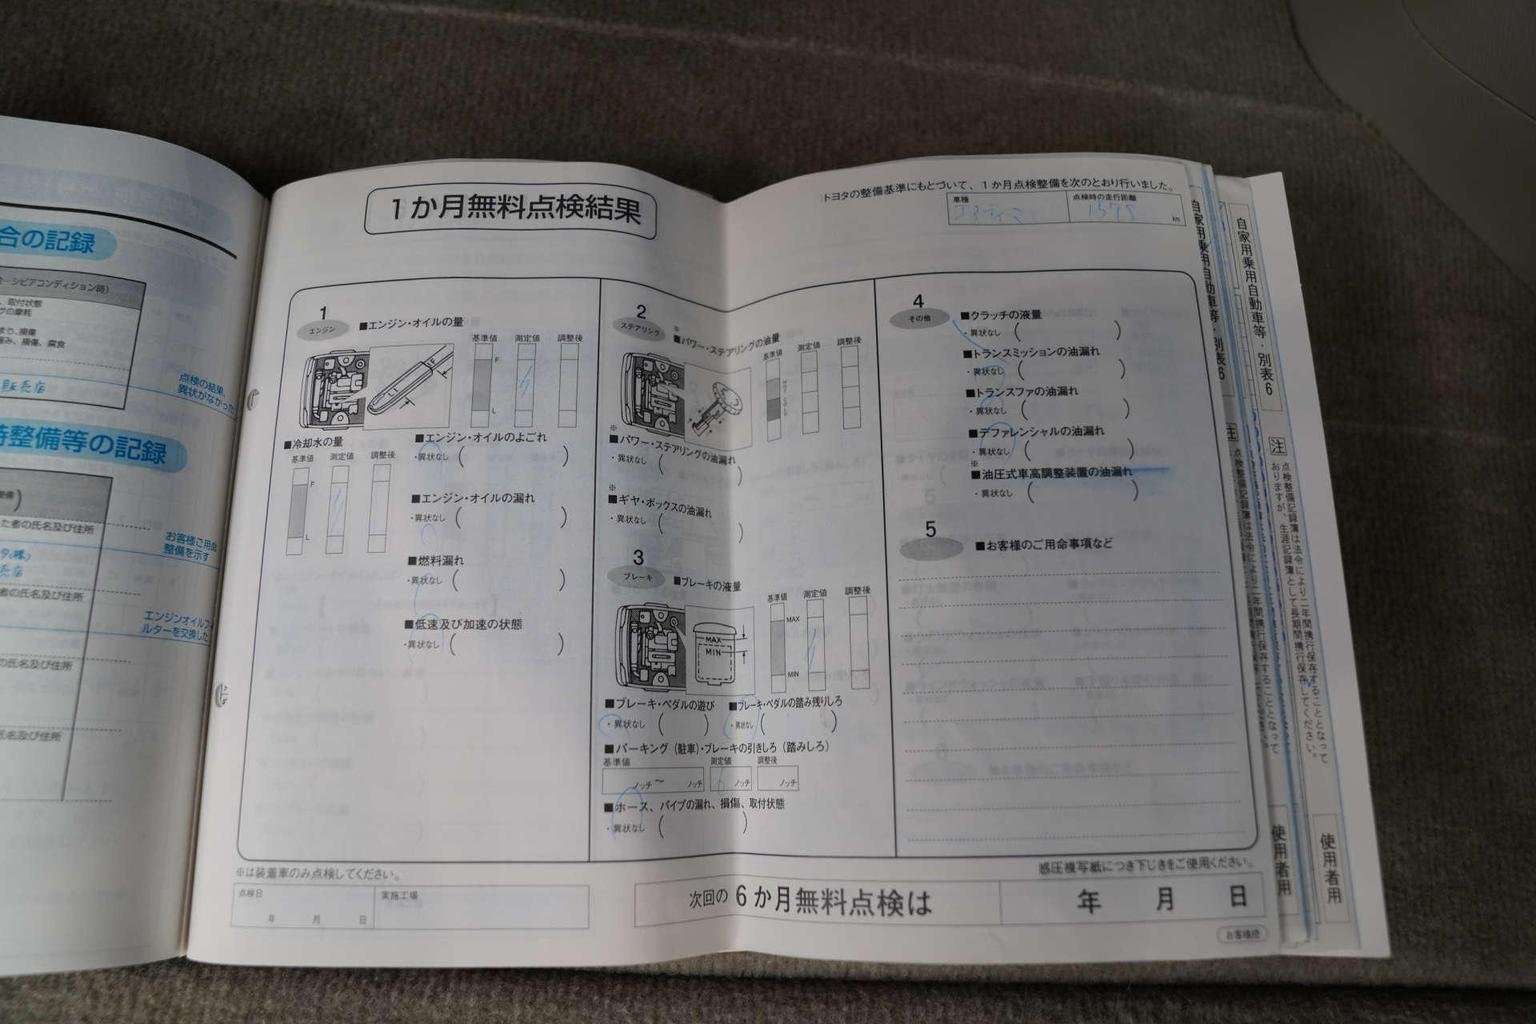 合の記録
取付状態
点検の結果、
異状がなかった
販売店
時整備等の記録
た者の氏名及び住所
お客様ご用命
整備を示す
者の氏名及び住所
エンジンオイルフ
ルターを交換した
の氏名及び住所
氏名及び住所
1か月無料点検結果
トヨタの整備基準にもとづいて、1か月点検整備を次のとおり行いました。
車種
点検時の走行距離
km
1
エンジン
■エンジン・オイルの量
基準値 測定値 調整後
F
L
■冷却水の量
基準値 測定値 調整後
F
L
■エンジン・オイルのよごれ
・異状なし ( )
■エンジン・オイルの漏れ
・異状なし ( )
■燃料漏れ
・異状なし ( )
■低速及び加速の状態
・異状なし ( )
2
ステアリング
※
■パワー・ステアリングの油量
基準値 測定値 調整後
※
■パワー・ステアリングの油漏れ
・異状なし ( )
※
■ギヤ・ボックスの油漏れ
・異状なし ( )
3
ブレーキ
■ブレーキの液量
基準値 測定値 調整後
MAX
MIN
MAX
MIN
■ブレーキ・ペダルの遊び
・異状なし ( )
■ブレーキ・ペダルの踏み残りしろ
・異状なし ( )
■パーキング(駐車)・ブレーキの引きしろ(踏みしろ)
基準値 測定値 調整後
ノッチ〜 ノッチ ノッチ ノッチ
■ホース、パイプの漏れ、損傷、取付状態
・異状なし ( )
4
その他
■クラッチの液量
・異状なし ( )
■トランスミッションの油漏れ
・異状なし ( )
■トランスファの油漏れ
・異状なし ( )
■デファレンシャルの油漏れ
・異状なし ( )
※
■油圧式車高調整装置の油漏れ
・異状なし ( )
5
■お客様のご用命事項など
※は装着車のみ点検してください。
感圧複写紙につき下じきをご使用ください。
点検日
年 月 日
実施工場
次回の6か月無料点検は
年 月 日
お客様控
自家用乗用自動車等・別表6
使用者用
自家用乗用自動車等・別表6
注
点検整備記録簿は法令により二年間携行保存することとなって
おりますが、生涯記録簿として長期間携行保存してください。
使用者用